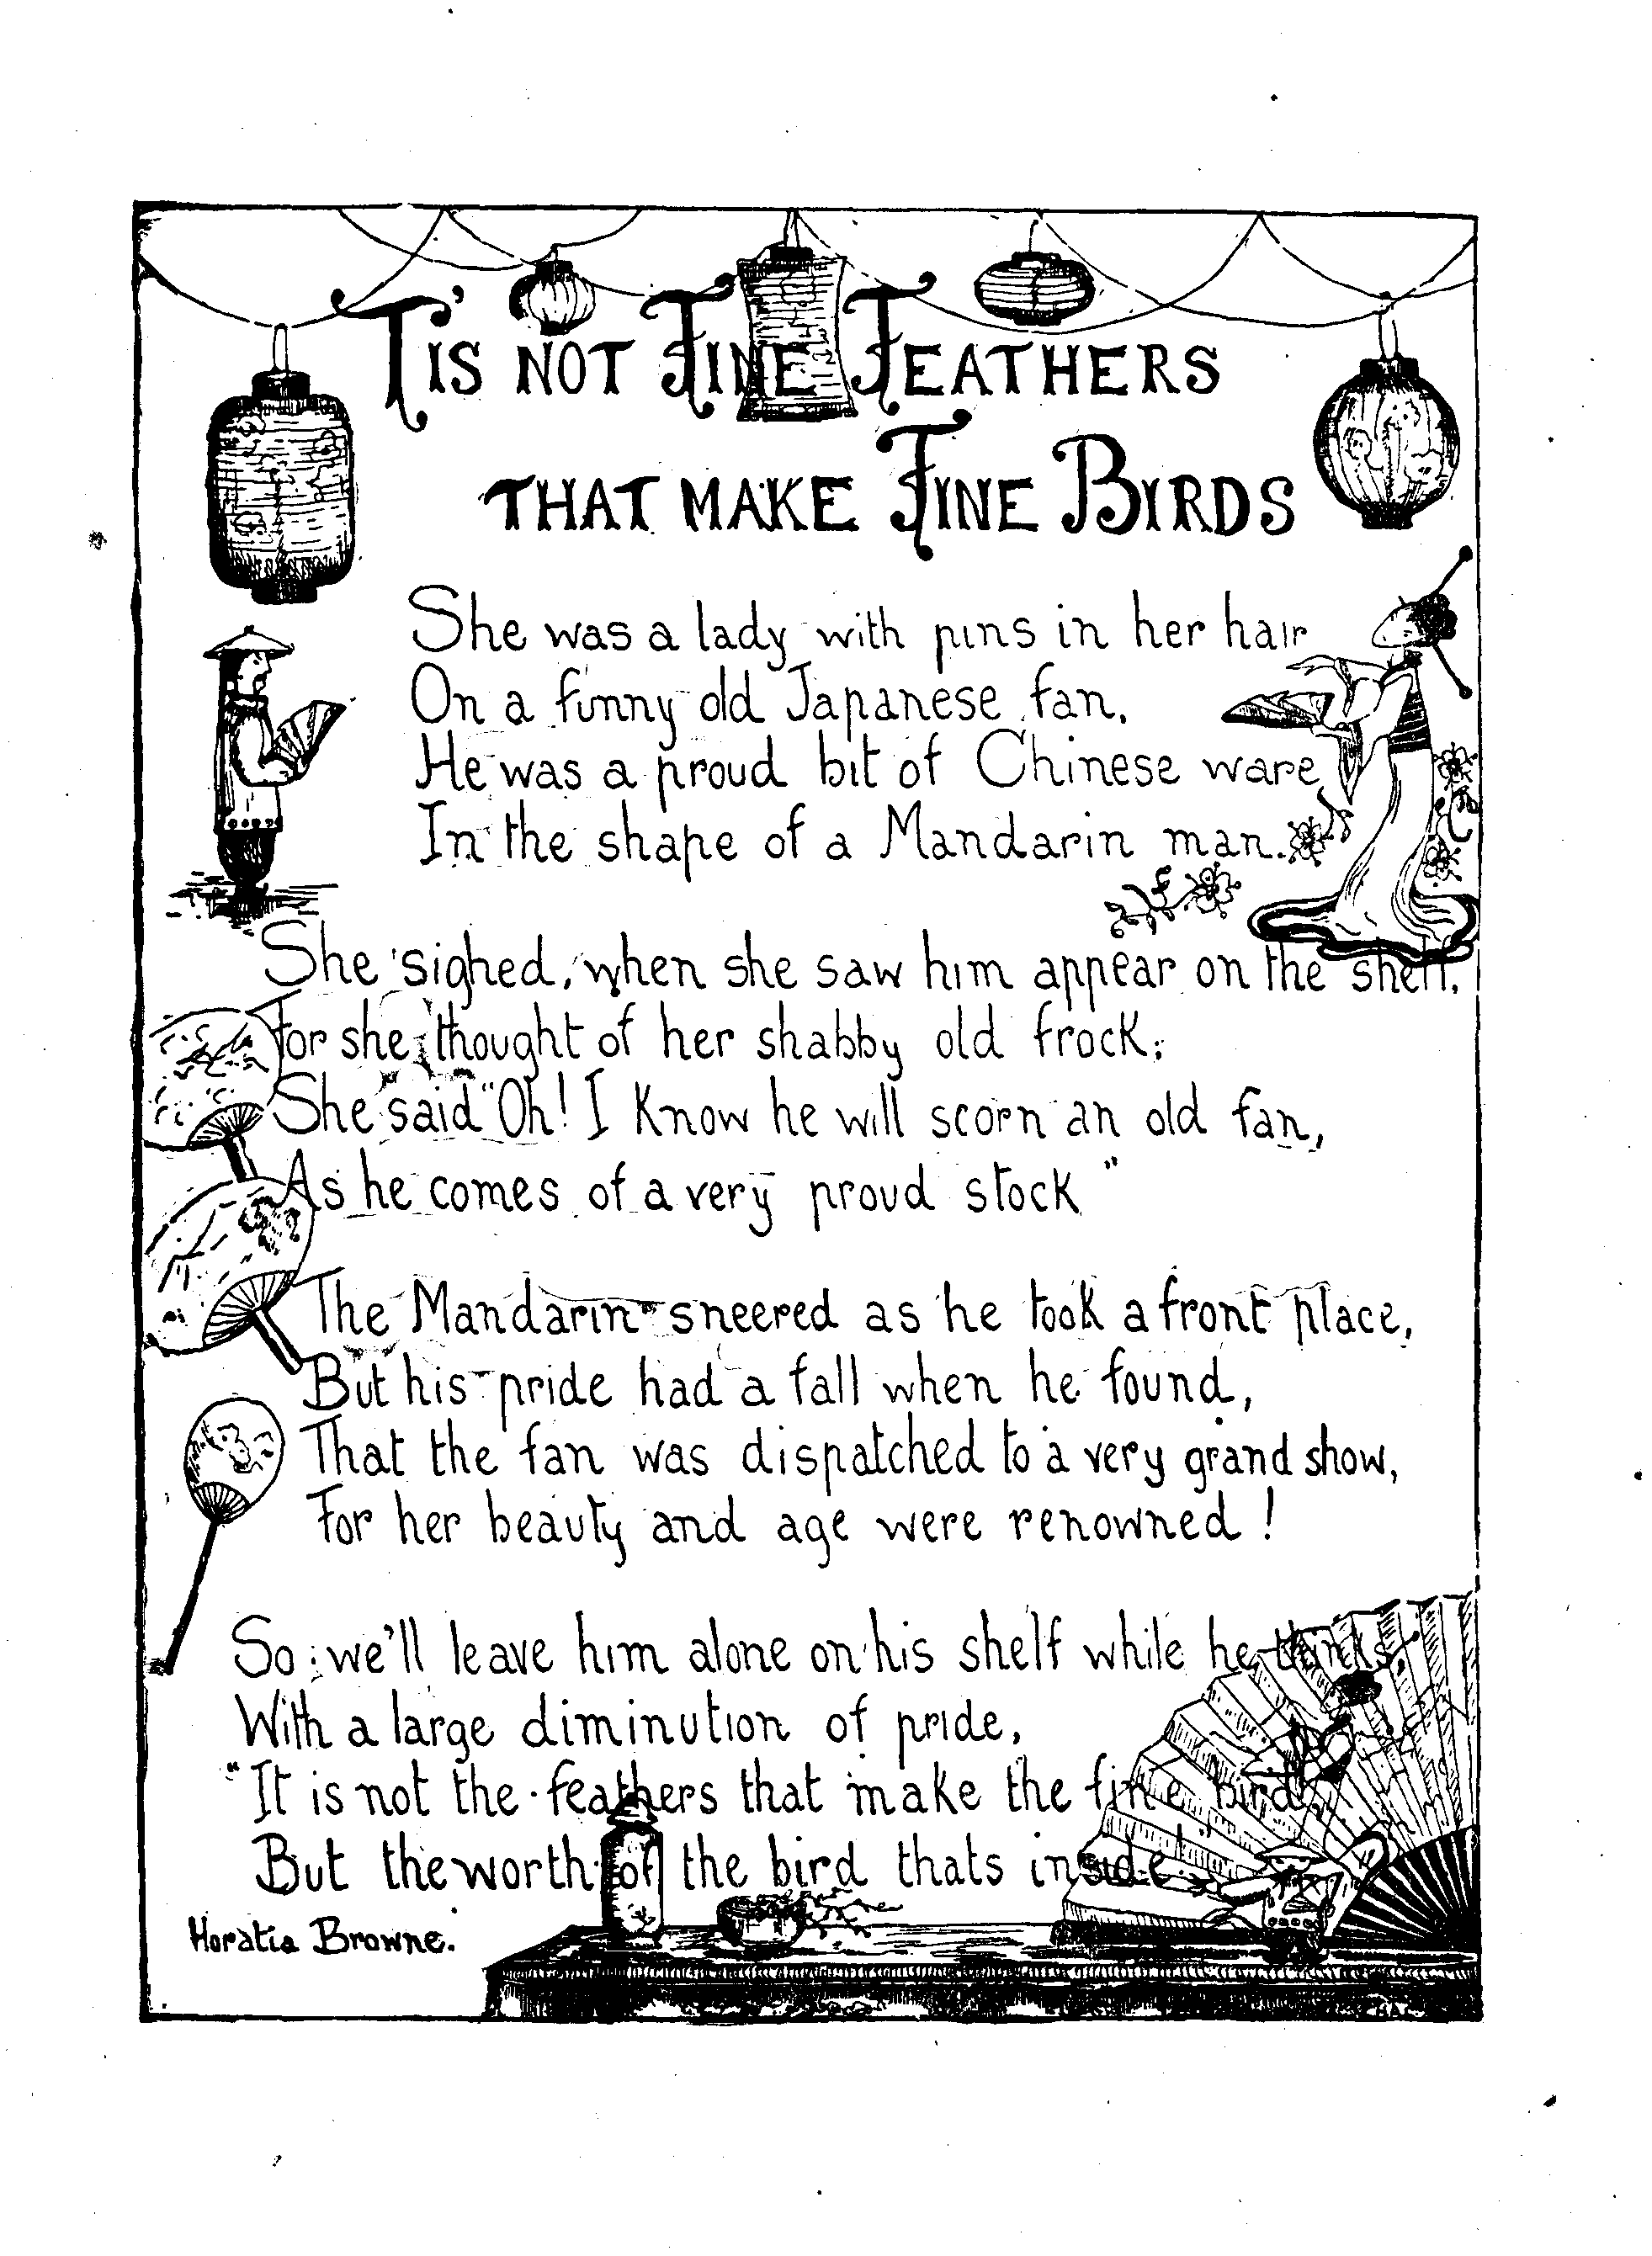 T'IS NOT FINE FEATHERS
THAT MAKE FINE BIRDS
She was a lady with pins in her hair
On a funny old Japanese fan,
He was a proud bit of Chinese ware
In the shape of a Mandarin man.
She sighed, when she saw him appear on the shelf,
For she thought of her shabby old frock;
She said "Oh! I know he will scorn an old fan,
As he comes of a very proud stock"
The Mandarin sneered as he took a front place,
But his pride had a fall when he found,
That the fan was dispatched to a very grand show,
For her beauty and age were renowned!
So we'll leave him alone on his shelf while he thinks,
With a large diminution of pride,
"It is not the feathers that make the fine bird,
But the worth of the bird thats inside"
Horatia Browne.